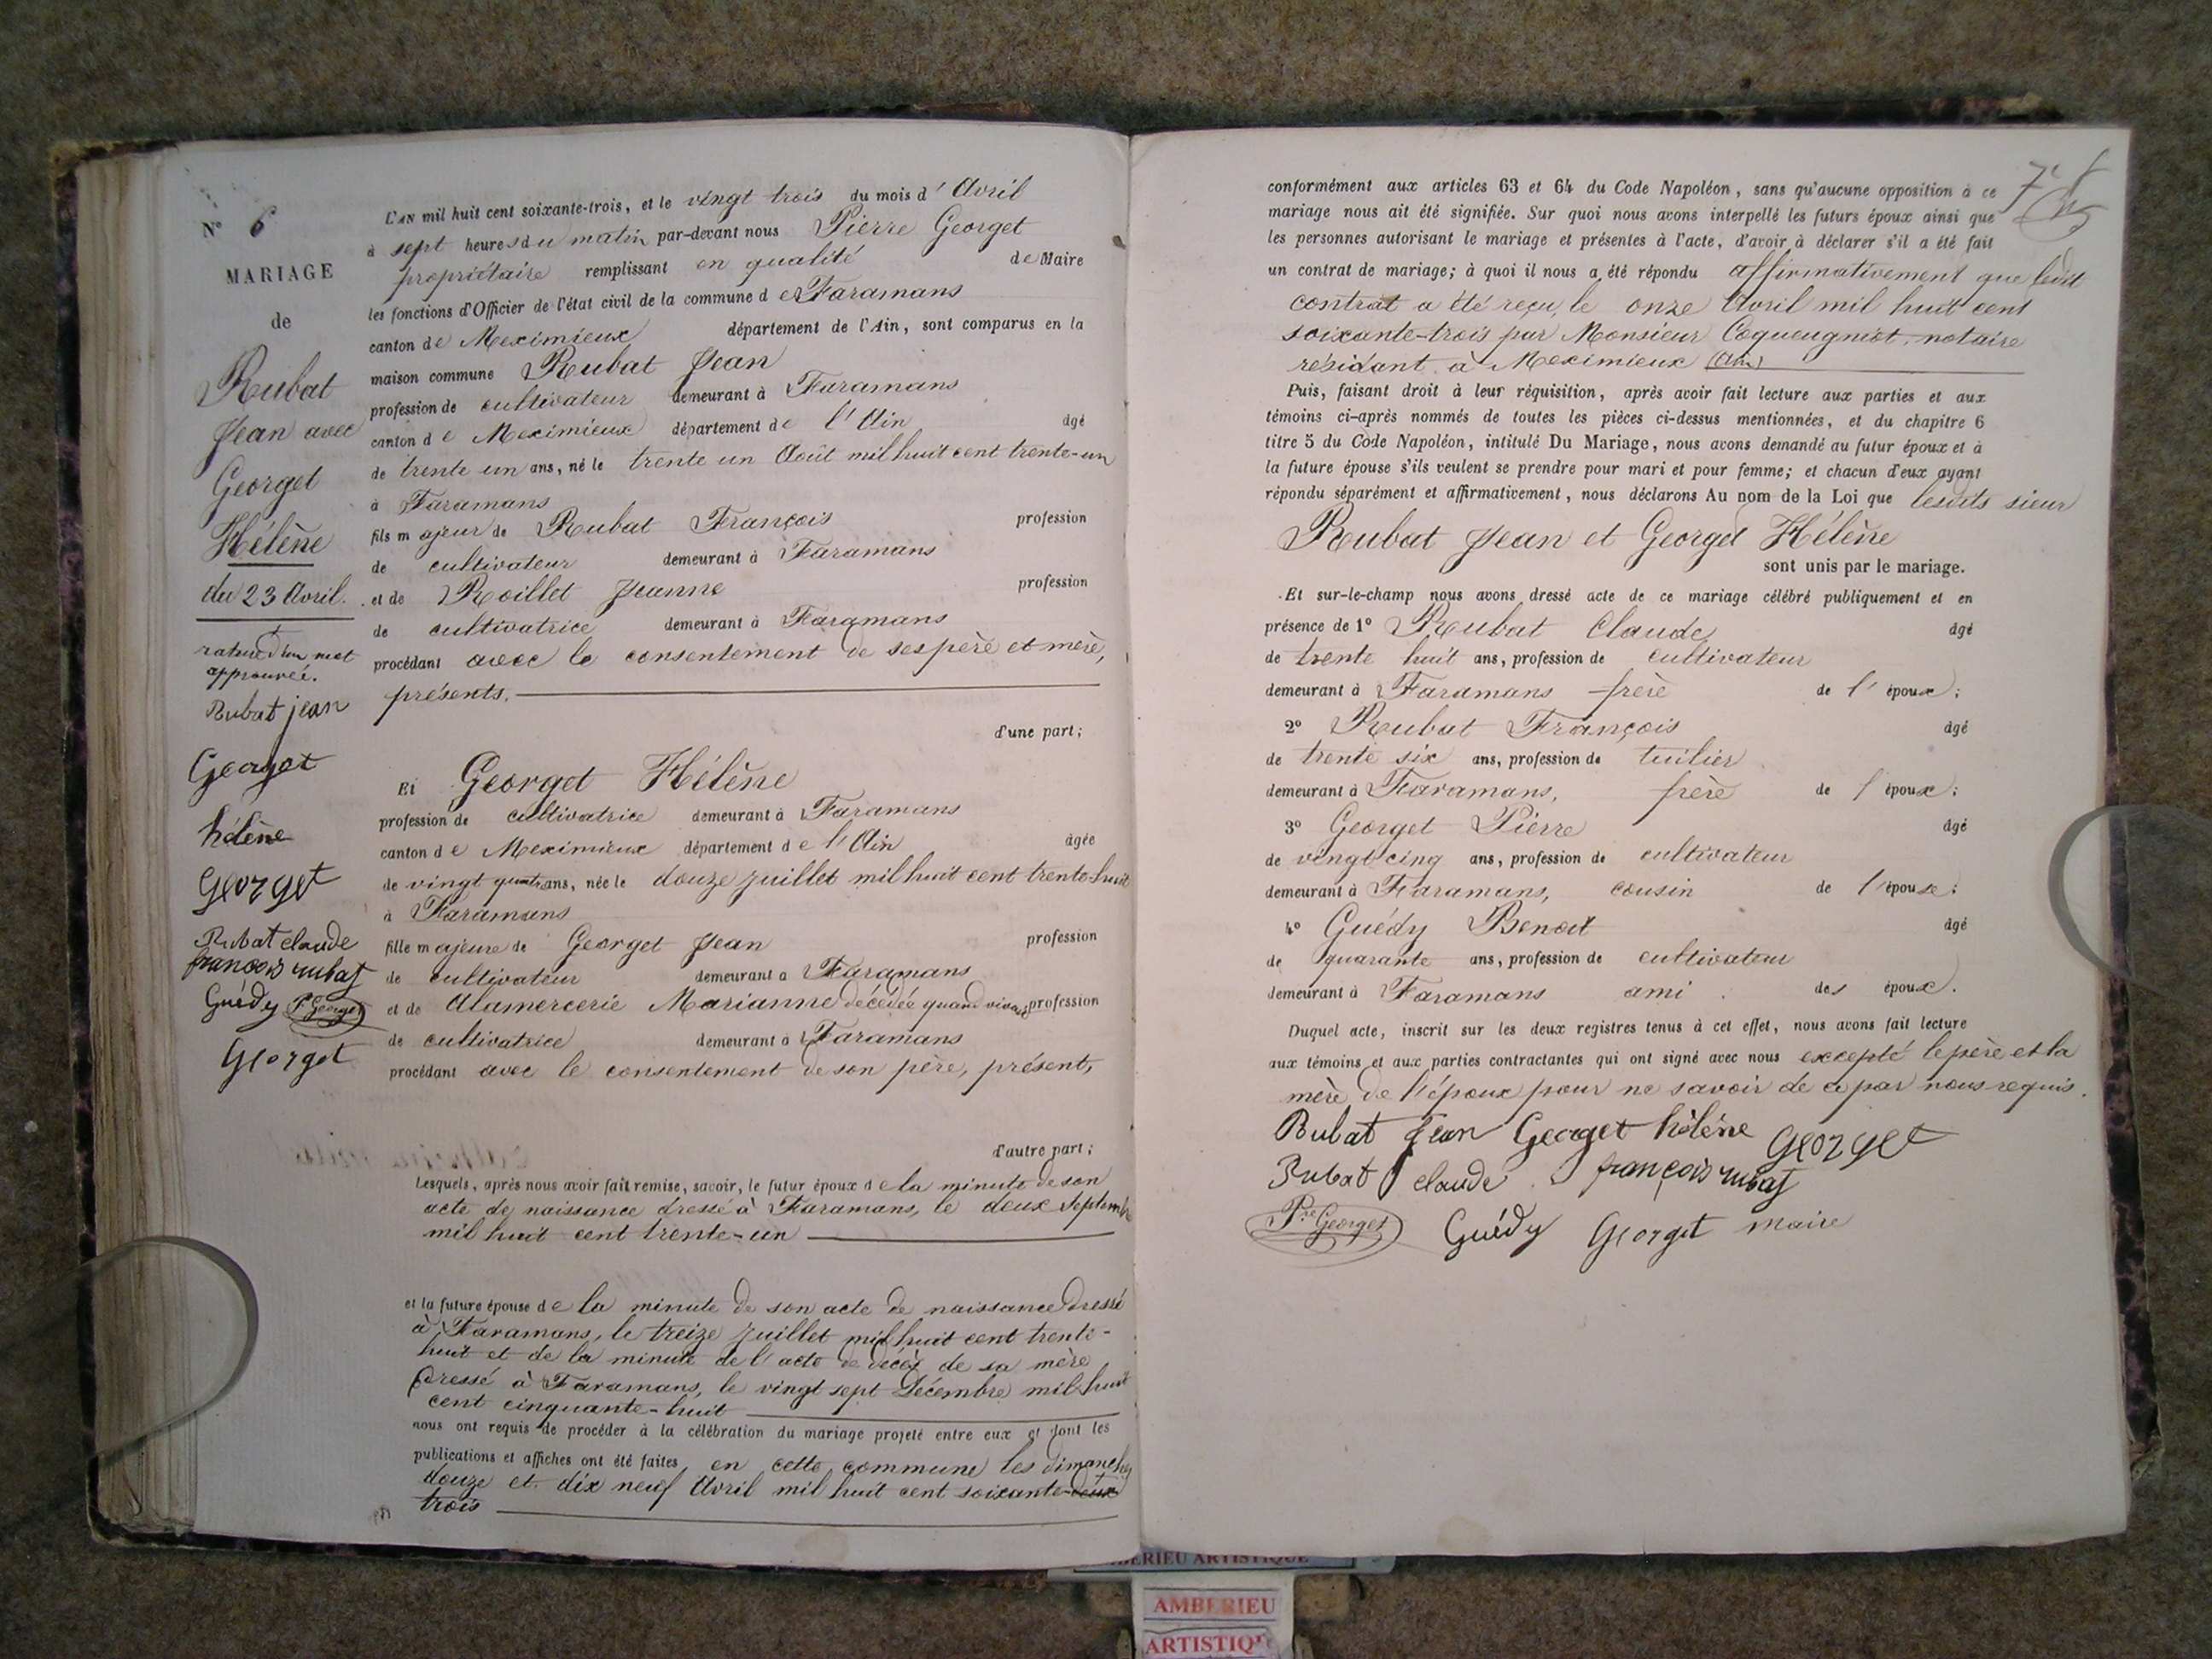 N° 6
MARIAGE
de
Rubat
Jean avec
Georget
Hélène
du 23 Avril.
rature d'un mot
approuvée.
Rubat jean
Georget
hélène
Georget
Rubat claude
françois rubat
Guédy Pre Georget
Georget
L'AN mil huit cent soixante-trois, et le vingt trois du mois d'Avril
à sept heures du matin par-devant nous Pierre Georget
propriétaire remplissant en qualité de Maire
les fonctions d'Officier de l'état civil de la commune de Faramans
canton de Meximieux département de l'Ain, sont comparus en la
maison commune Rubat Jean
profession de cultivateur demeurant à Faramans
canton de Meximieux département de l'Ain âgé
de trente un ans, né le trente un Août mil huit cent trente-un
à Faramans
fils majeur de Rubat François profession
de cultivateur demeurant à Faramans
et de Roillet Jeanne profession
de cultivatrice demeurant à Faramans
procédant avec le consentement de ses père et mère,
présents.
d'une part;
Et Georget Hélène
profession de cultivatrice demeurant à Faramans
canton de Meximieux département de l'Ain âgée
de vingt quatre ans, née le douze juillet mil huit cent trente huit
à Faramans
fille majeure de Georget Jean profession
de cultivateur demeurant à Faramans
et de Alamercerie Marianne décédée quand vivait profession
de cultivatrice demeurant à Faramans
procédant avec le consentement de son père, présent,
d'autre part;
Lesquels, après nous avoir fait remise, savoir, le futur époux de la minute de son
acte de naissance dressé à Faramans, le deux Septembre
mil huit cent trente-un
et la future épouse de la minute de son acte de naissance dressé
à Faramans, le treize juillet mil huit cent trente-
huit et de la minute de l'acte de décès de sa mère
dressé à Faramans, le vingt sept Décembre mil huit
cent cinquante-huit
nous ont requis de procéder à la célébration du mariage projeté entre eux et dont les
publications et affiches ont été faites en cette commune les dimanches
douze et dix neuf Avril mil huit cent soixante-deux
trois
conformément aux articles 63 et 64 du Code Napoléon, sans qu'aucune opposition à ce
mariage nous ait été signifiée. Sur quoi nous avons interpellé les futurs époux ainsi que
les personnes autorisant le mariage et présentes à l'acte, d'avoir à déclarer s'il a été fait
un contrat de mariage; à quoi il nous a été répondu affirmativement que ledit
contrat a été reçu le onze Avril mil huit cent
soixante-trois par Monsieur Coqueugniot, notaire
résidant à Meximieux (Ain)
Puis, faisant droit à leur réquisition, après avoir fait lecture aux parties et aux
témoins ci-après nommés de toutes les pièces ci-dessus mentionnées, et du chapitre 6
titre 5 du Code Napoléon, intitulé Du Mariage, nous avons demandé au futur époux et à
la future épouse s'ils veulent se prendre pour mari et pour femme; et chacun d'eux ayant
répondu séparément et affirmativement, nous déclarons Au nom de la Loi que lesdits sieur
Rubat Jean et Georget Hélène
sont unis par le mariage.
Et sur-le-champ nous avons dressé acte de ce mariage célébré publiquement et en
présence de 1° Rubat Claude âgé
de trente huit ans, profession de cultivateur
demeurant à Faramans frère de l'époux;
2° Rubat François âgé
de trente six ans, profession de tuilier
demeurant à Faramans, frère de l'époux;
3° Georget Pierre âgé
de vingt cinq ans, profession de cultivateur
demeurant à Faramans, cousin de l'épouse;
4° Guédy Benoit âgé
de quarante ans, profession de cultivateur
demeurant à Faramans ami des époux.
Duquel acte, inscrit sur les deux registres tenus à cet effet, nous avons fait lecture
aux témoins et aux parties contractantes qui ont signé avec nous excepté le père et la
mère de l'époux pour ne savoir de ce par nous requis.
Rubat Jean Georget hélène Georget
Rubat claude françois rubat
Pre Georget Guédy Georget maire
AMBERIEU ARTISTIQUE
AMBERIEU
ARTISTIQUE